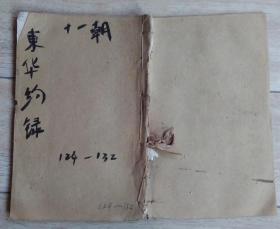 十一朝
東华約録
124—132
124—132